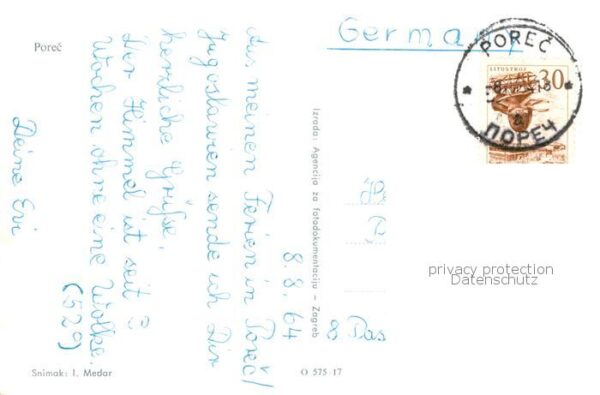 Poreč
Germany
POREČ
ПОРЕЧ
LITOSTROJ
30
8.8.64
Aus meinen Ferien in Poreč/
Jugoslawien sende ich Dir
herzliche Grüße.
Der Himmel ist seit 3
Wochen ohne eine Wolke.
(529)
Deine Evi
Izrada: Agencija za fotodokumentaciju – Zagreb
8 Pas
privacy protection
Datenschutz
Snimak: I. Medar
O 575 17